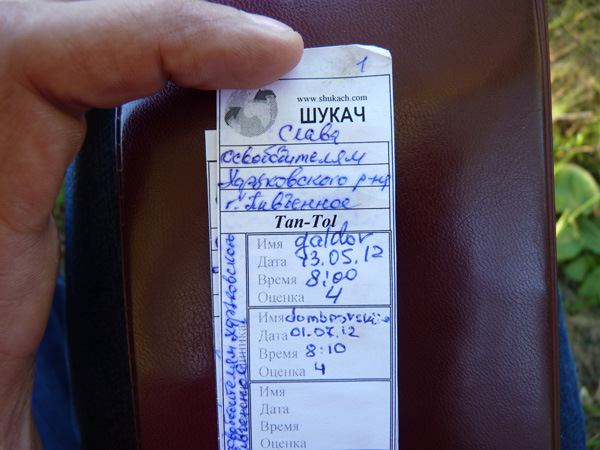 1
www.shukach.com
ШУКАЧ
Слава
освободителям
Харьковского р-на
г. Пивденное
Tan-Tol
Имя galdor
Дата 13.05.12
Время 8:00
Оценка 4
Имя dombrovskiy
Дата 01.07.12
Время 8:10
Оценка 4
Имя
Дата
Время
Оценка
освободителям Харьковского